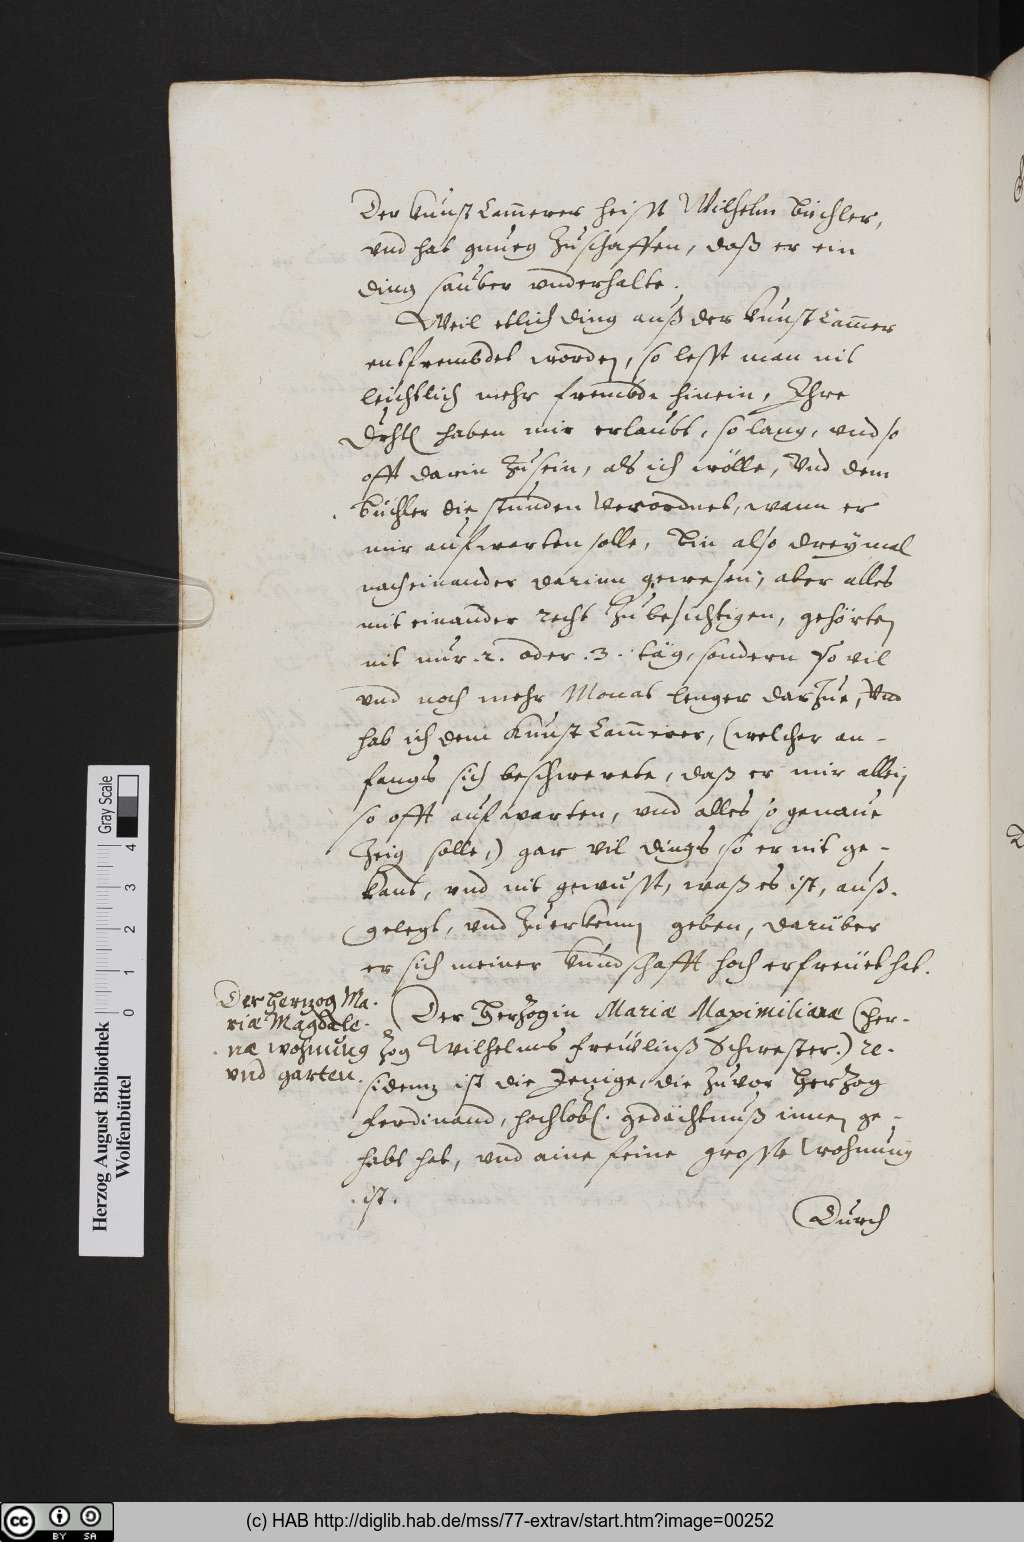 Der Kunst Cam̄erer heisst Wilhelm Büchler,
vnd hat gnueg zuschaffen, daß er ein
ding sauber vnderhalte.
Weil etlich ding auß der Kunst Cam̄er
entfrembdet worden, so lesst man nit
leichtlich mehr frembde hinein, Ihre
Drhtl haben mir erlaubt, so lang, vnd so
offt darin zu sein, als ich wölle, Vnd dem
Büchler die stunden Verordnet, wann er
mir aufwarten solle, Bin also dreymal
nacheinander darinn gewesen, aber alles
mit einander recht zubesichtigen, gehörten
nit nur .2. oder .3. täg, sondern so vil
vnd noch mehr Monat lenger darzue, Vnd
hab ich dem Kunst Cam̄erer, (welcher an-
fangs sich beschwerete, daß er mir allein
so offt aufwarten, vnd alles so genaue
zeig solle,) gar vil dings, so er nit ge-
kant, vnd nit gewusst, waß es ist, auß-
gelegt, vnd zuerkenn geben, darüber
er sich meiner kundschafft hoch erfreüet hat.
Der Hertzog Ma-
riæ Magdale-
næ wohnung
vnd garten.
Der Herzogin Mariæ Maximilianæ (Her-
zog Wilhelms freüwlinß Schwester) re-
sidentz ist die Jenige, die zuvor Herzog
Ferdinand, hochlobl. gedächtnuß innen ge-
habt hat, vnd aine feine grosse wohnung
ist.
Durch
Herzog August Bibliothek
Wolfenbüttel
0 1 2 3 4
Gray Scale
(c) HAB http://diglib.hab.de/mss/77-extrav/start.htm?image=00252
cc BY SA